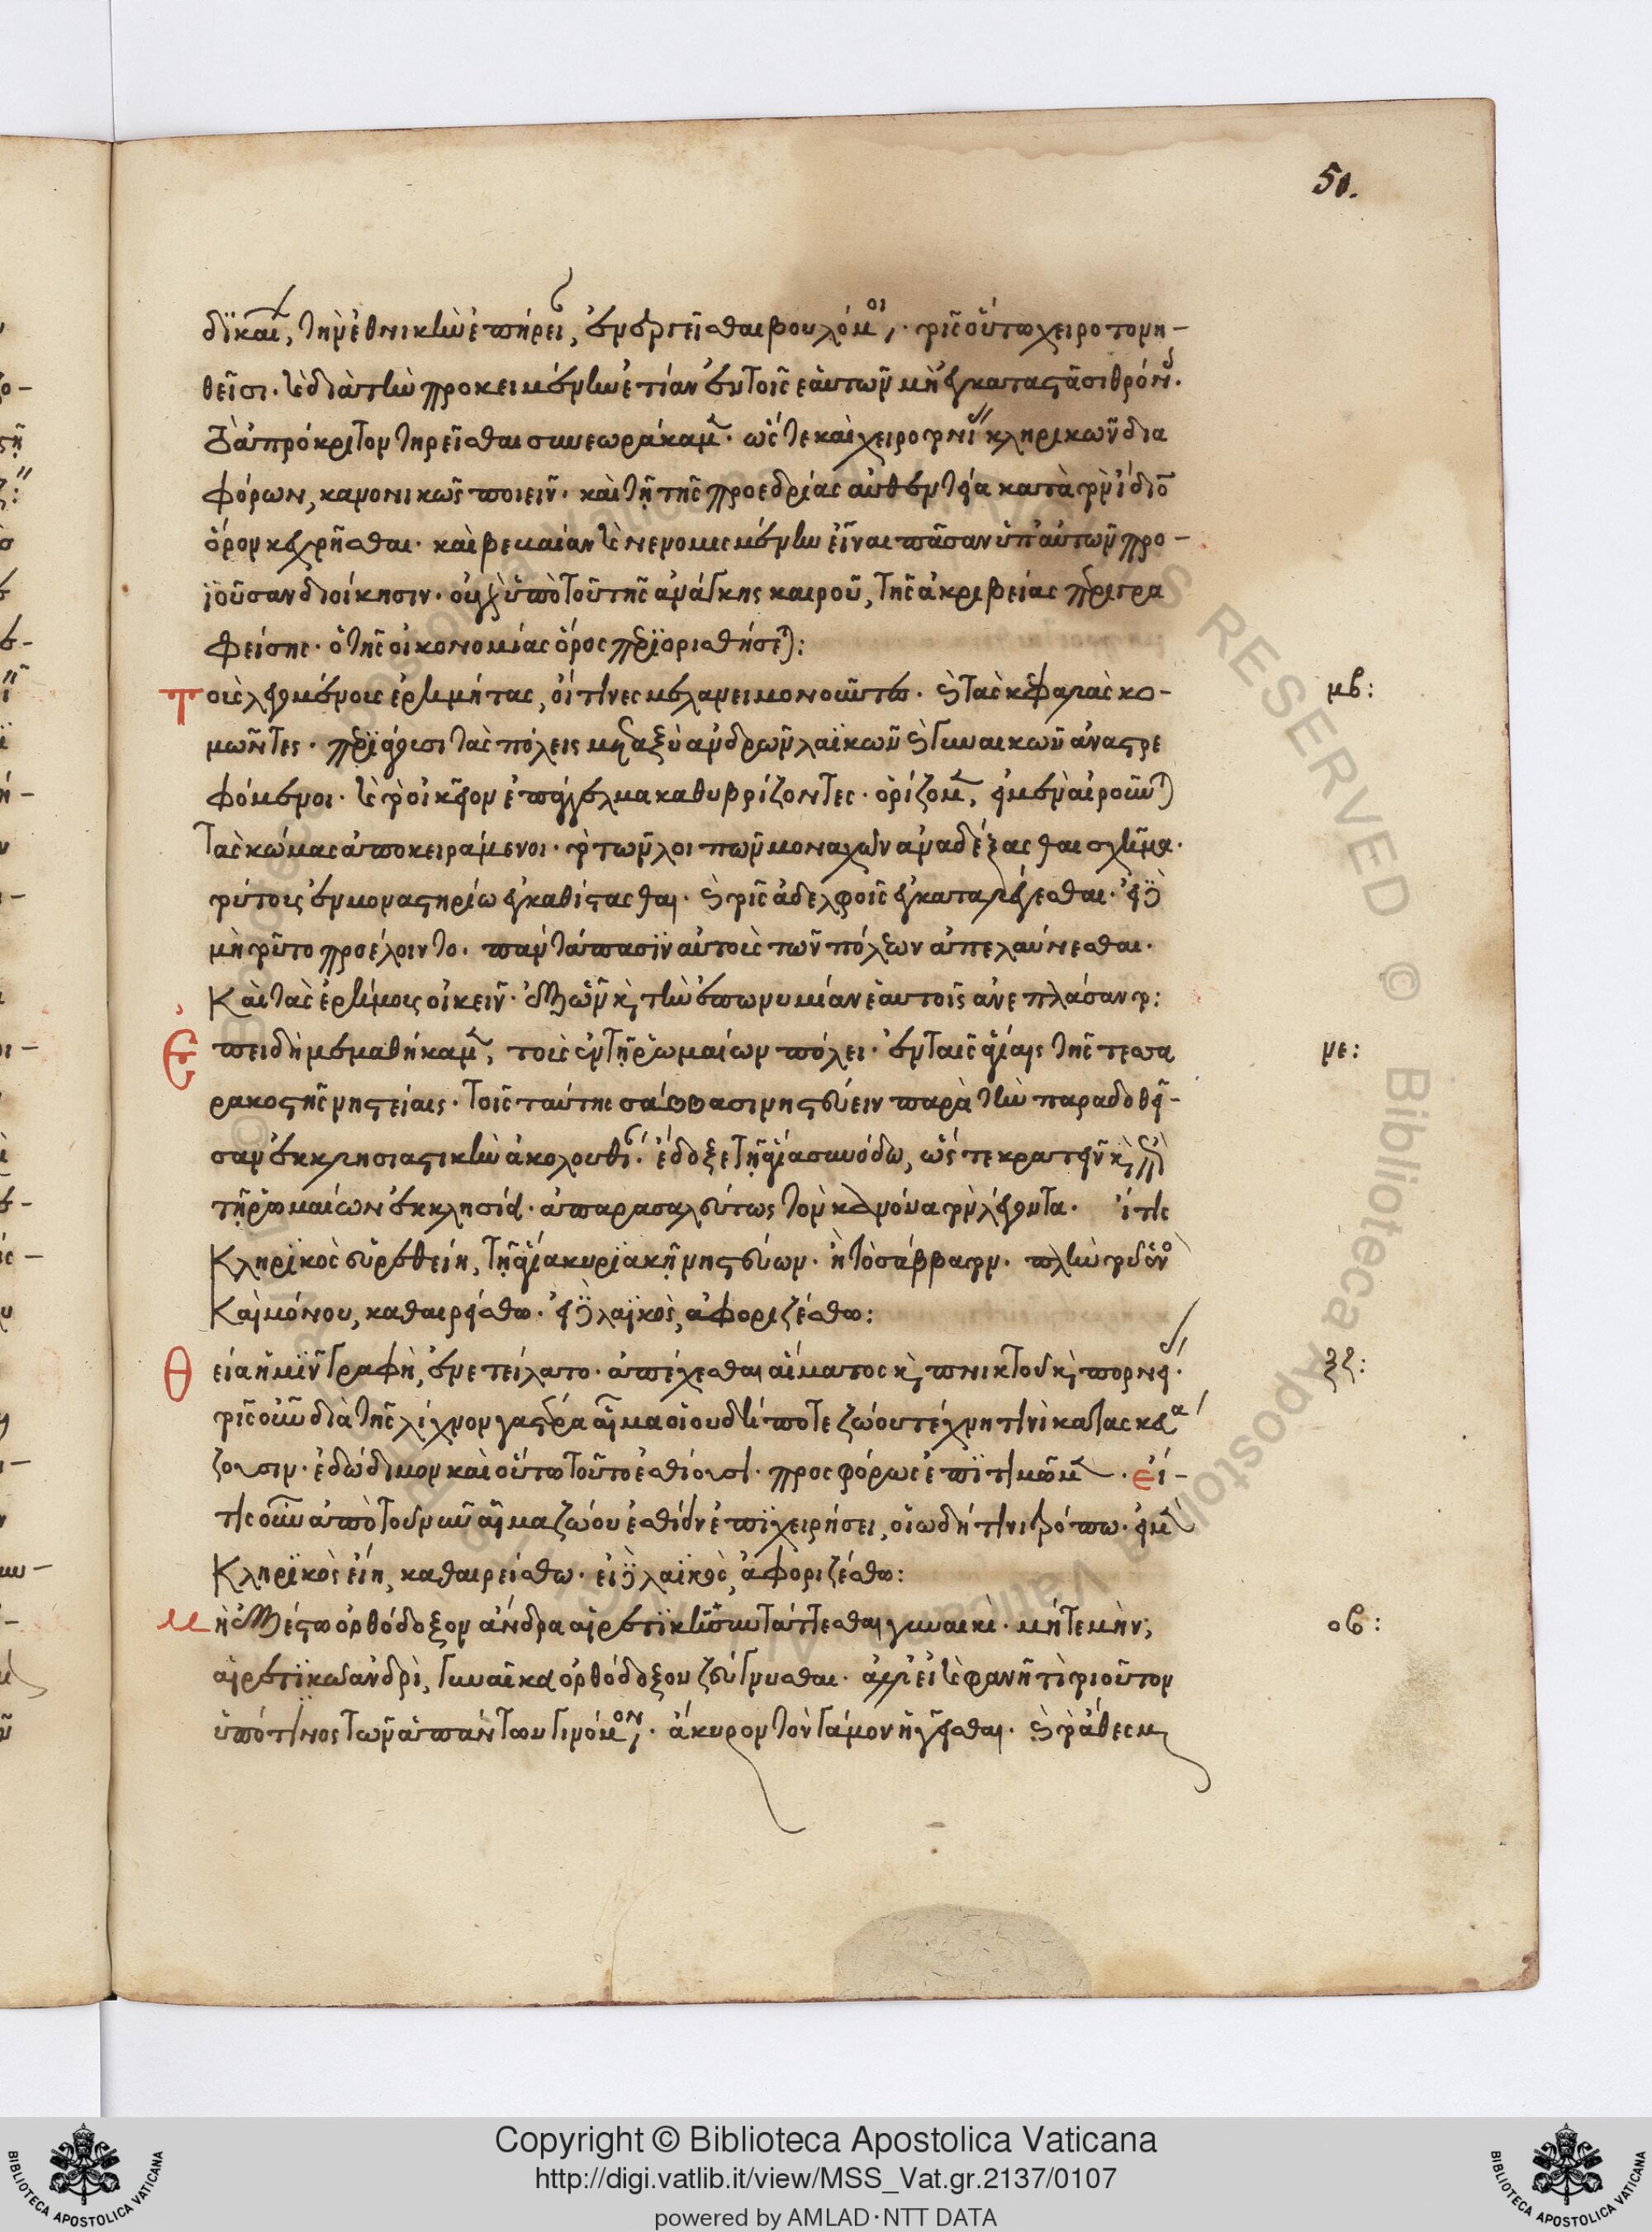 50.
δίκαιον, τὴν ἐθνικὴν ἐπήρειαν, ἐνεργεῖσθαι βουλόμενοι, τοῖς οὕτω χειροτονη-
θεῖσι. καὶ διὰ τὴν προκειμένην αἰτίαν ἐν τοῖς ἑαυτῶν μὴ ἐγκαταστᾶσι θρόνοις.
τὸ ἀπρόκριτον τηρεῖσθαι συνεωράκαμεν. ὥστε καὶ χειροτονίας κληρικῶν δια
φόρων, κανονικῶς ποιεῖν. καὶ τῇ τῆς προεδρίας αὐθεντείᾳ κατὰ τὸν ἴδιον
ὅρον κεχρῆσθαι. καὶ βεβαίαν καὶ νενομισμένην εἶναι πᾶσαν ὑπ' αὐτῶν προ-
ϊοῦσαν διοίκησιν. οὐ γὰρ ὑπὸ τοῦ τῆς ἀνάγκης καιροῦ, τῆς ἀκριβείας περιγρα
φείσης. ὁ τῆς οἰκονομίας ὅρος περιορισθήσεται:
Τοὺς λεγομένους ἐρημήτας, οἵτινες μελανειμονοῦντες. καὶ τὰς κεφαλὰς κο-
μῶντες. περιάγουσι τὰς πόλεις μεταξὺ ἀνδρῶν λαϊκῶν καὶ γυναικῶν ἀναστρε
φόμενοι. καὶ τὸ οἰκεῖον ἐπάγγελμα καθυβρίζοντες. ὁρίζομεν, εἰ μὲν αἱροῦνται
τὰς κόμας ἀποκειράμενοι. τὸ τῶν λοιπῶν μοναχῶν ἀναδέξασθαι σχῆμα.
τούτοις ἐν μοναστηρίω ἐγκαθίστασθαι. καὶ τοῖς ἀδελφοῖς ἐγκαταλέγεσθαι. εἰ δὲ
μὴ τοῦτο προέλοιντο. παντάπασιν αὐτοὺς τῶν πόλεων ἀπελαύνεσθαι.
Καὶ τὰς ἐρήμους οἰκεῖν. ἐξ ὧν καὶ τὴν ἐπωνυμίαν ἑαυτοῖς ἀνεπλάσαντο:
μβ:
Ἐπειδὴ μεμαθήκαμεν, τοὺς ἐν τῇ ῥωμαίων πόλει. ἐν ταῖς ἁγίαις τῆς τεσσα
ρακοστῆς νηστείαις. τοῖς ταύτης σάββασι νηστεύειν παρὰ τὴν παραδοθεῖ-
σαν ἐκκλησιαστικὴν ἀκολουθίαν. ἔδοξε τῇ ἁγία συνόδω, ὥστε κρατεῖν καὶ ἐπὶ
τῇ ῥωμαίων ἐκκλησία. ἀπαρασαλεύτως τὸν κανόνα τὸν λέγοντα. εἴ τις
Κληρικὸς εὑρεθείη, τῇ ἁγία κυριακῇ νηστεύων. ἢ τὸ σάββατον. πλὴν τοῦ ἑνὸς
Καὶ μόνου, καθαιρείσθω. εἰ δὲ λαϊκὸς, ἀφοριζέσθω:
νε:
Θεία ἡμῖν γραφὴ, ἐνετείλατο. ἀπέχεσθαι αἵματος καὶ πνικτοῦ καὶ πορνείας.
τοῖς οὖν διὰ τῆς λίχνον γαστέρα αἷμα οἱουδήποτε ζώου τέχνη τινὶ κατασκευά
ζουσιν. ἐδώδιμον καὶ οὕτω τοῦτο ἐσθίουσι. προσφόρως ἐπιτιμῶμεν. εἴ-
τις οὖν ἀπὸ τοῦ νῦν αἷμα ζώου ἐσθίειν ἐπιχειρήσει, οἱωδήτινι τρόπω. εἰ μὲν
Κληρικὸς εἴη, καθαιρείσθω. εἰ δὲ λαϊκὸς, ἀφοριζέσθω:
ξζ:
Μὴ ἐξέστω ὀρθόδοξον ἄνδρα αἱρετικῇ συντάττεσθαι γυναικὶ. μήτε μὴν,
αἱρετικῶ ἀνδρὶ, γυναῖκα ὀρθόδοξον ζεύγνυσθαι. ἀλλ' εἰ καὶ φανῇ τι τοιοῦτον
ὑπό τινος τῶν ἁπάντων γινόμενον, ἄκυρον τὸν γάμον ἡγεῖσθαι. καὶ τὸ ἄθεσμον
οβ:
Copyright © Biblioteca Apostolica Vaticana
http://digi.vatlib.it/view/MSS_Vat.gr.2137/0107
powered by AMLAD·NTT DATA